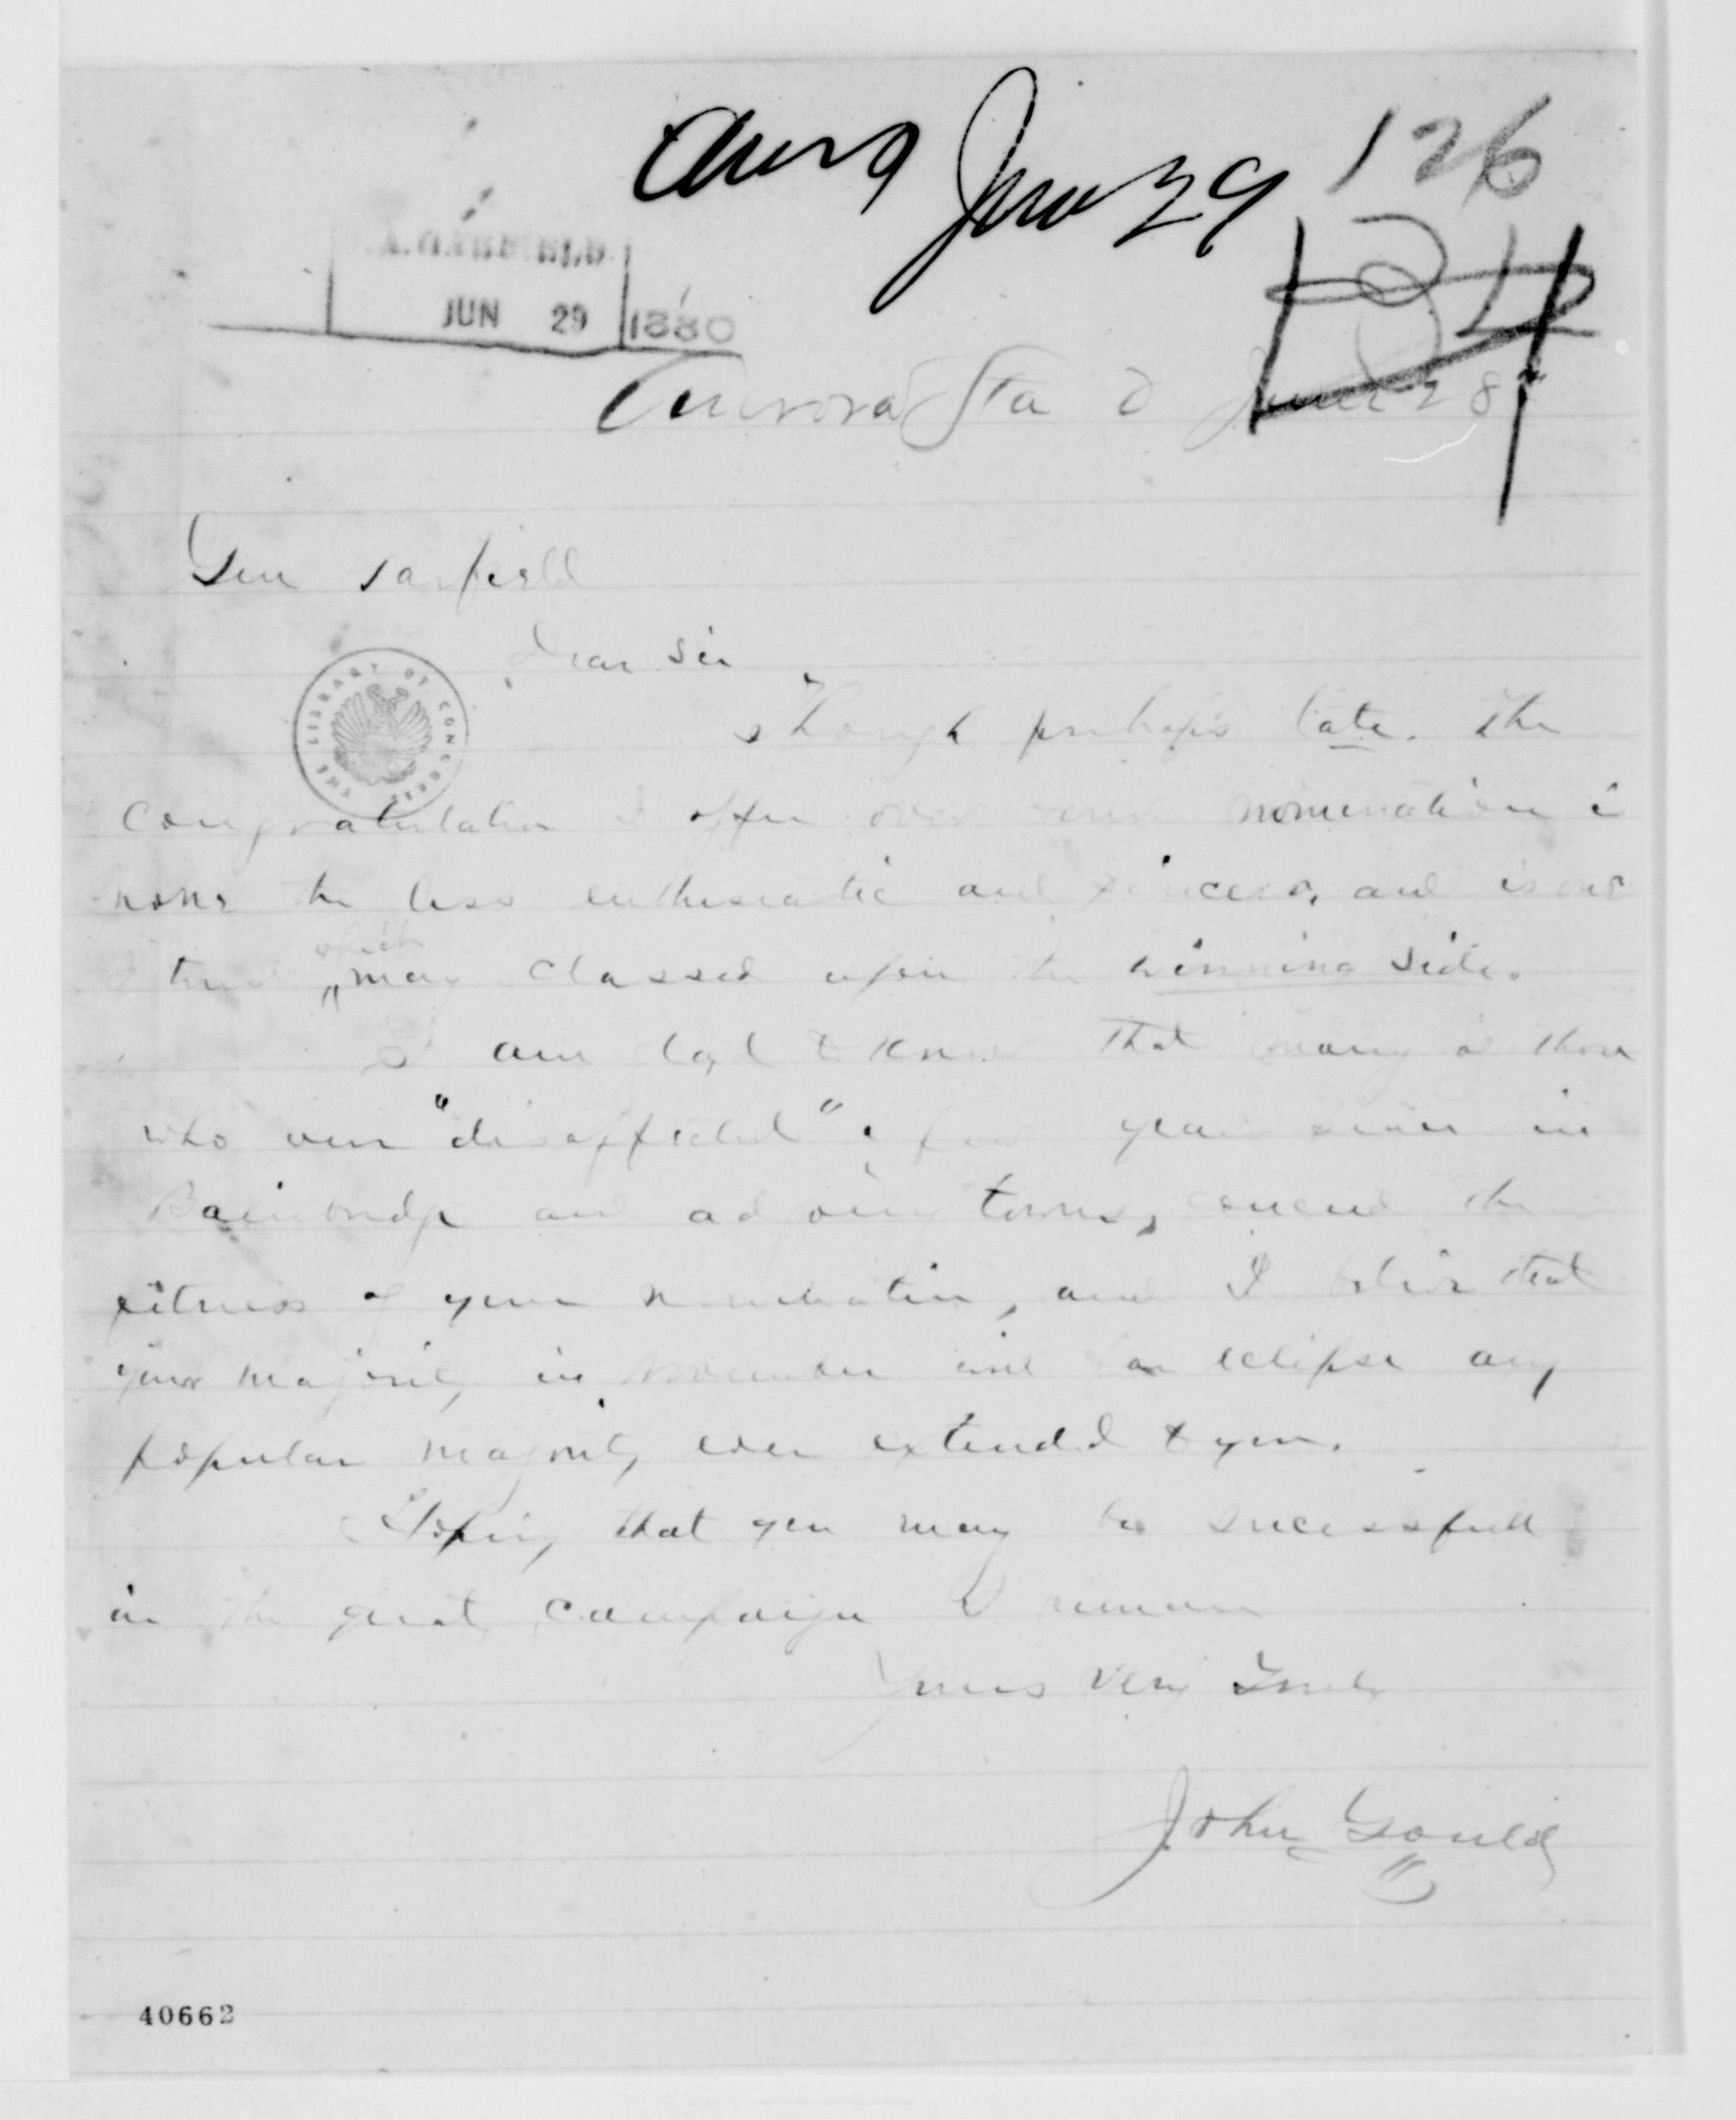 Ansd June 29
126
J.A. GARFIELD.
JUN 29 1880
Aurora Sta O June 28"
Gen Garfield
Dear Sir
Though perhaps late. The
congratulation I offer over your nomination is
none the less enthusiastic and sincere, and is one
I trust which may classed upon the winning side.
I am glad to know that many of those
who were "disaffected" a few years since in
Bainbridge and adjoing towns, concede the
fitness of your nomination, and I believe that
your majority in November will far eclipse any
popular majority ever extended to you.
Hoping that you may be sucessfull
in the great campaign I remain
Yours Very Truly
John Gould
THE LIBRARY OF CONGRESS
40662